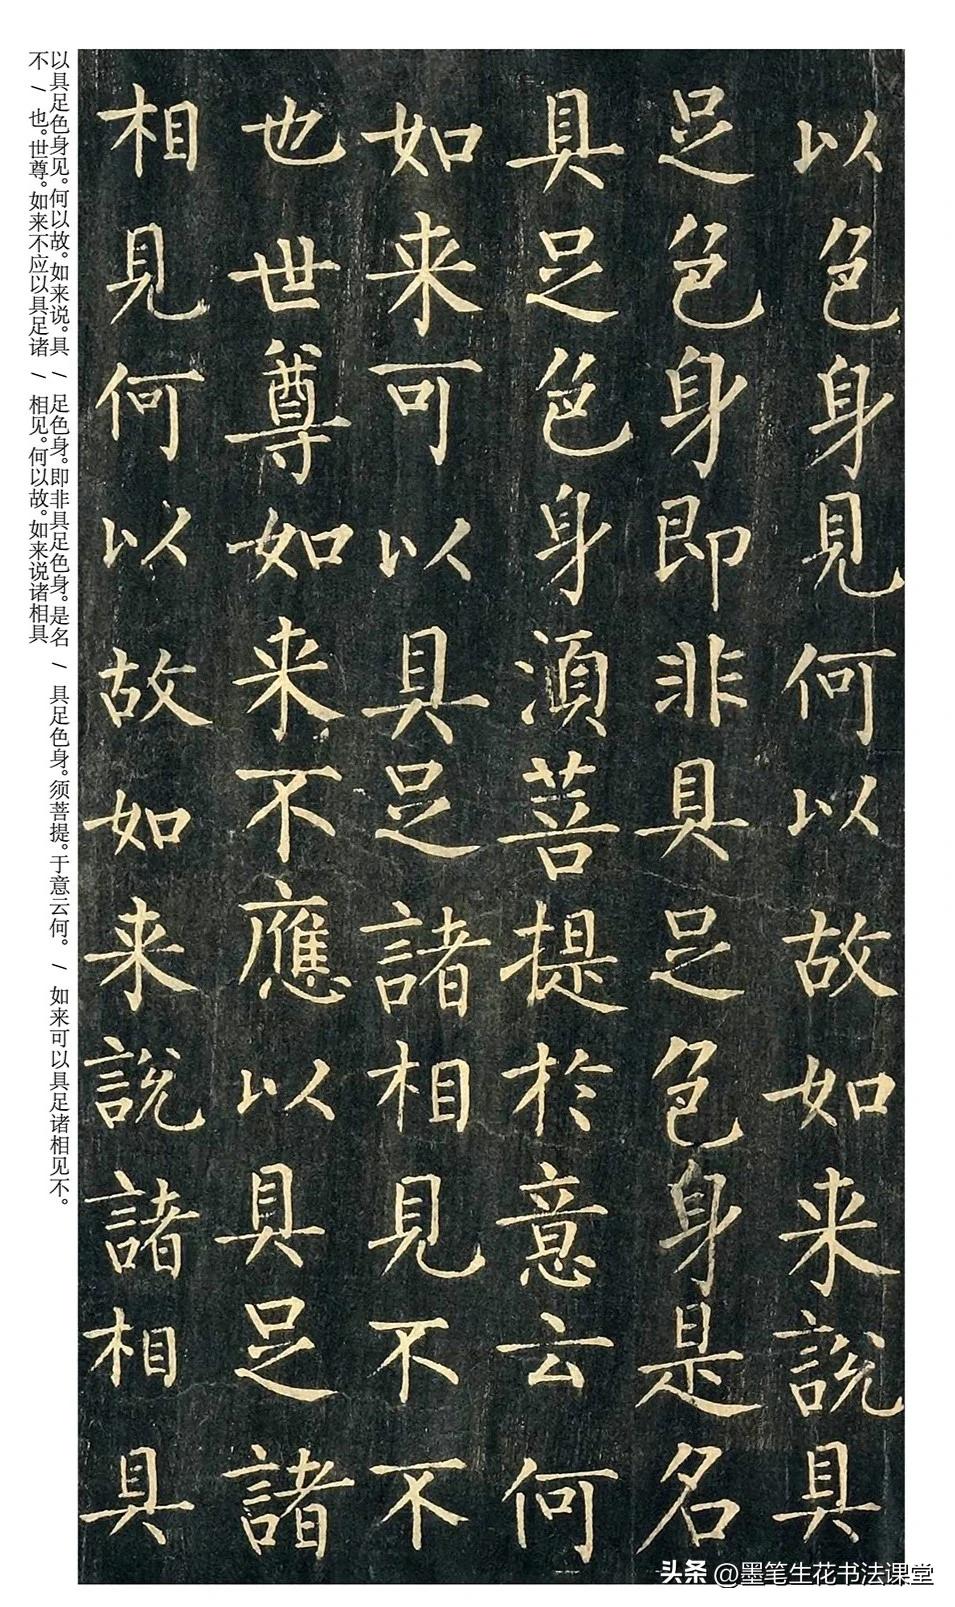 以色身見何以故如来說具
足色身即非具足色身是名
具足色身湏菩提於意云何
如来可以具足諸相見不不
也世尊如来不應以具足諸
相見何以故如来說諸相具
以具足色身见。何以故。如来说。具 / 足色身。即非具足色身。是名 / 具足色身。须菩提。于意云何。 / 如来可以具足诸相见不。
不 / 也。世尊。如来不应以具足诸 / 相见。何以故。如来说诸相具
头条 @墨笔生花书法课堂